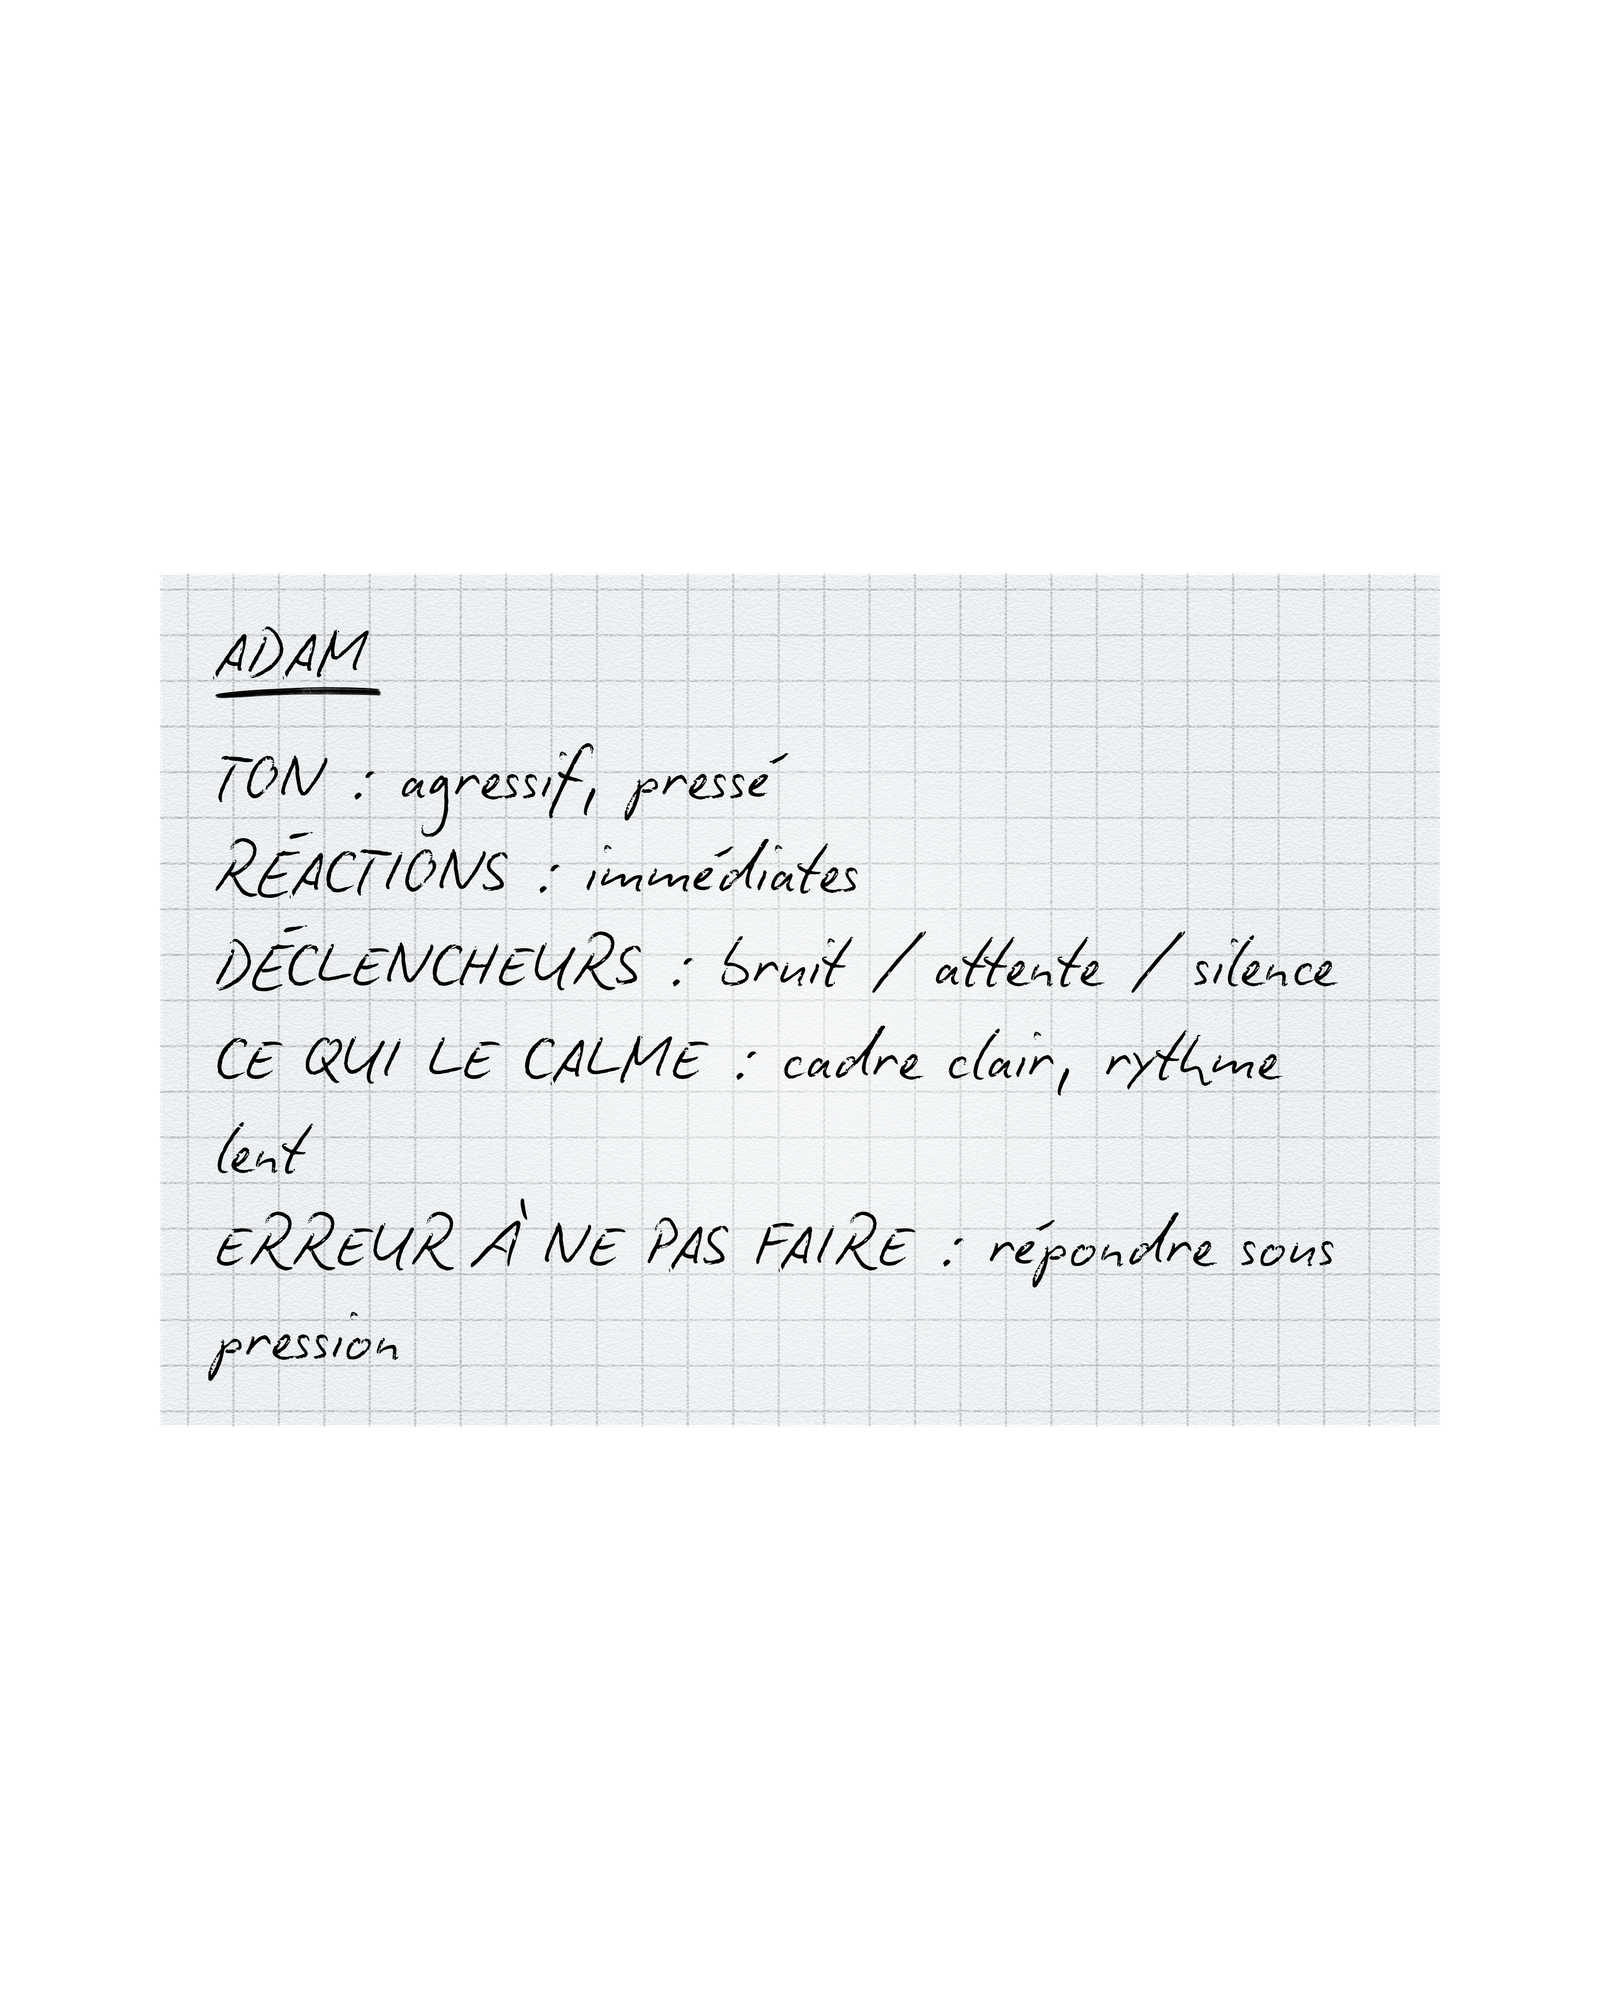 ADAM
TON : agressif, pressé
RÉACTIONS : immédiates
DÉCLENCHEURS : bruit / attente / silence
CE QUI LE CALME : cadre clair, rythme
lent
ERREUR À NE PAS FAIRE : répondre sous
pression